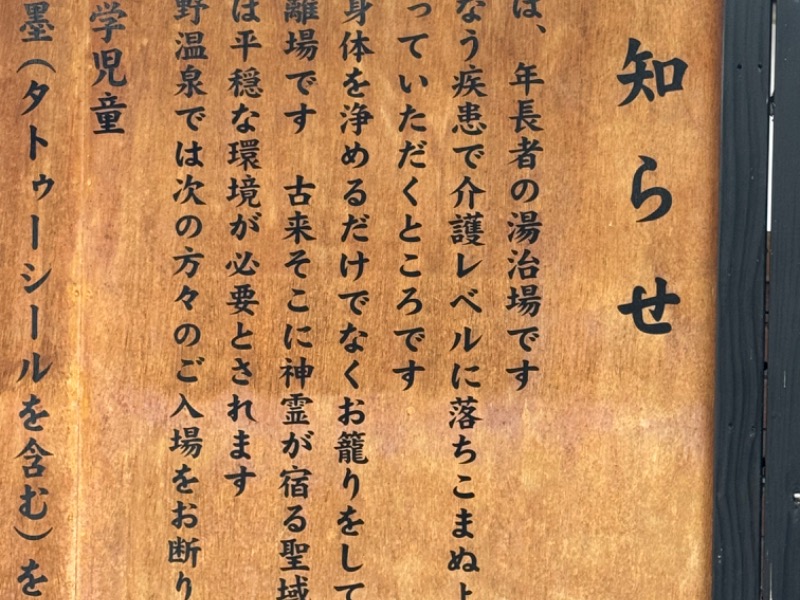 知らせ
は、年長者の湯治場です
なう疾患で介護レベルに落ちこまぬよ
っていただくところです
身体を浄めるだけでなくお籠りをして
離場です　古来そこに神霊が宿る聖域
は平穏な環境が必要とされます
野温泉では次の方々のご入場をお断り
学児童
墨（タトゥーシールを含む）を